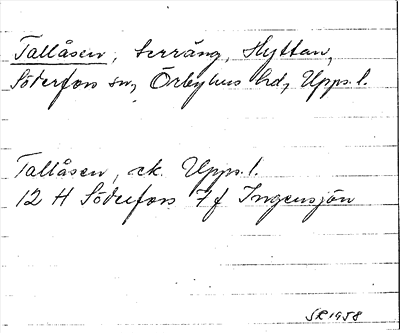 Tallåsen, terräng, Hyttan,
Söderfors sn, Örbyhus hd, Upps. l.
Tallåsen, ek. Upps. l.
12 H Söderfors 7 f Ingensjön
SR 1958